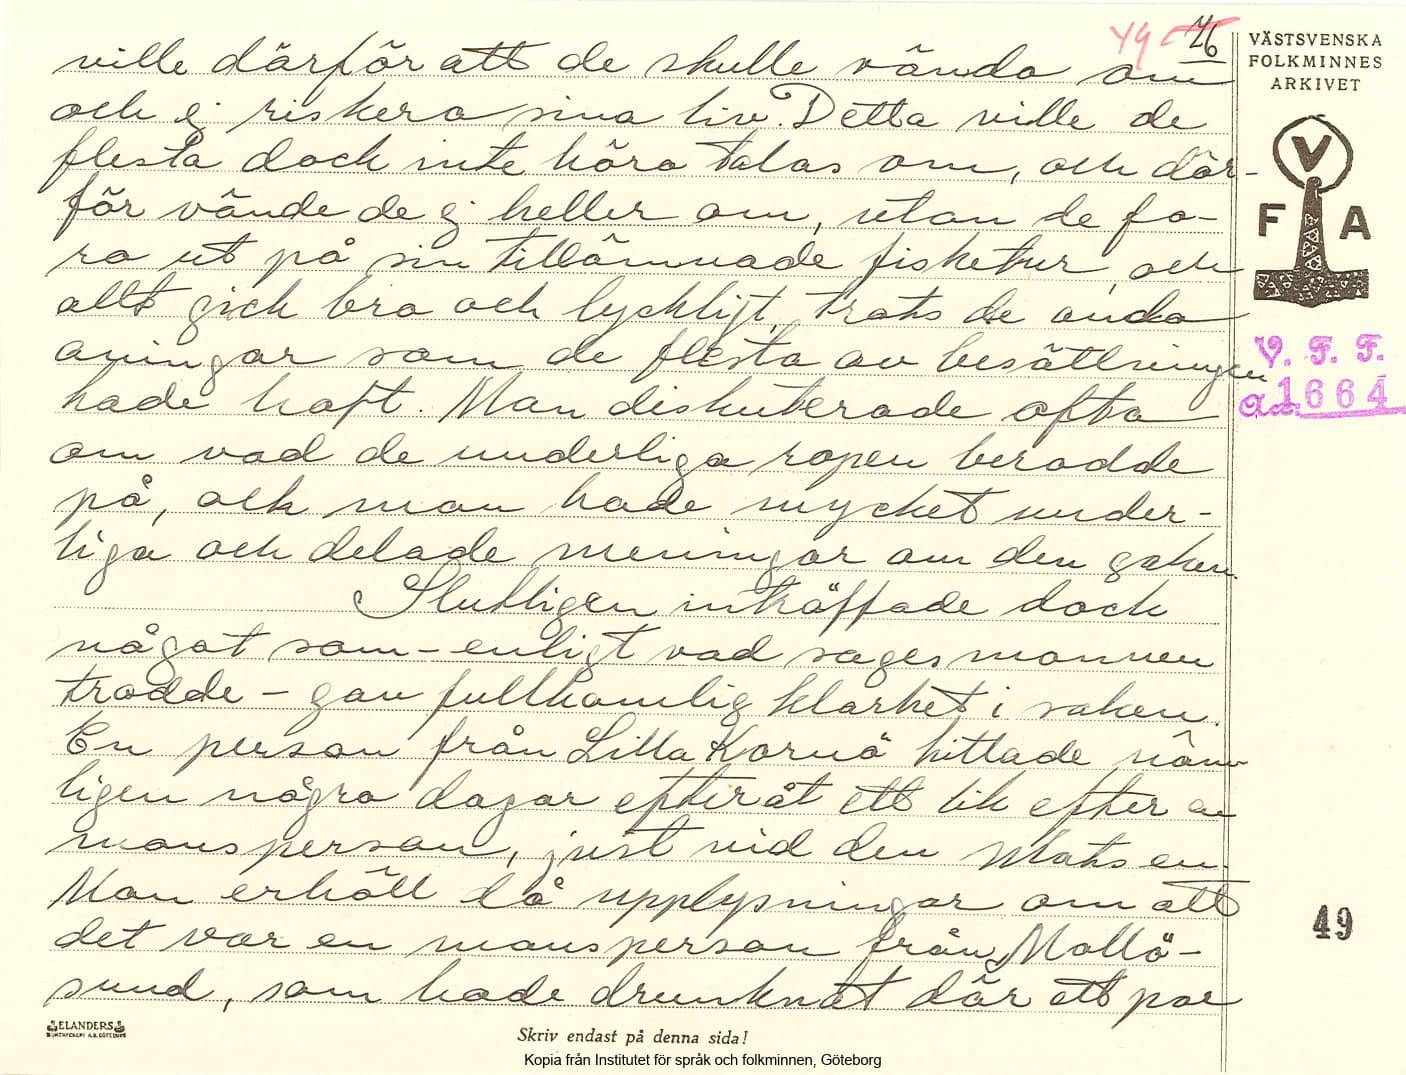 49 46
VÄSTSVENSKA
FOLKMINNES
ARKIVET
V
F A
V. F. F.
1664
ville därför att de skulle vända om
och ej riskera sina liv. Detta ville de
flesta dock inte höra talas om, och där-
för vände de ej heller om, utan de fo-
ro ut på sin tillämnade fisketur, och
allt gick bra och lyckligt, trots de onda
aningar som de flesta av besättningen
hade haft. Man diskuterade ofta
om vad de underliga ropen berodde
på, och man hade mycket under-
liga och delade meningar om den saken.
Slutligen inträffade dock
något som – enligt vad sagesmannen
trodde – gav fullkomlig klarhet i saken.
En person från Lilla Kornö hittade näm-
ligen några dagar efteråt ett lik efter en
mansperson, just vid den platsen.
Man erhöll då upplysningar om att
det var en mansperson från Mollö-
sund, som hade drunknat där ett par
49
ELANDERS
BOKTRYCKERI A.B. GÖTEBORG
Skriv endast på denna sida!
Kopia från Institutet för språk och folkminnen, Göteborg